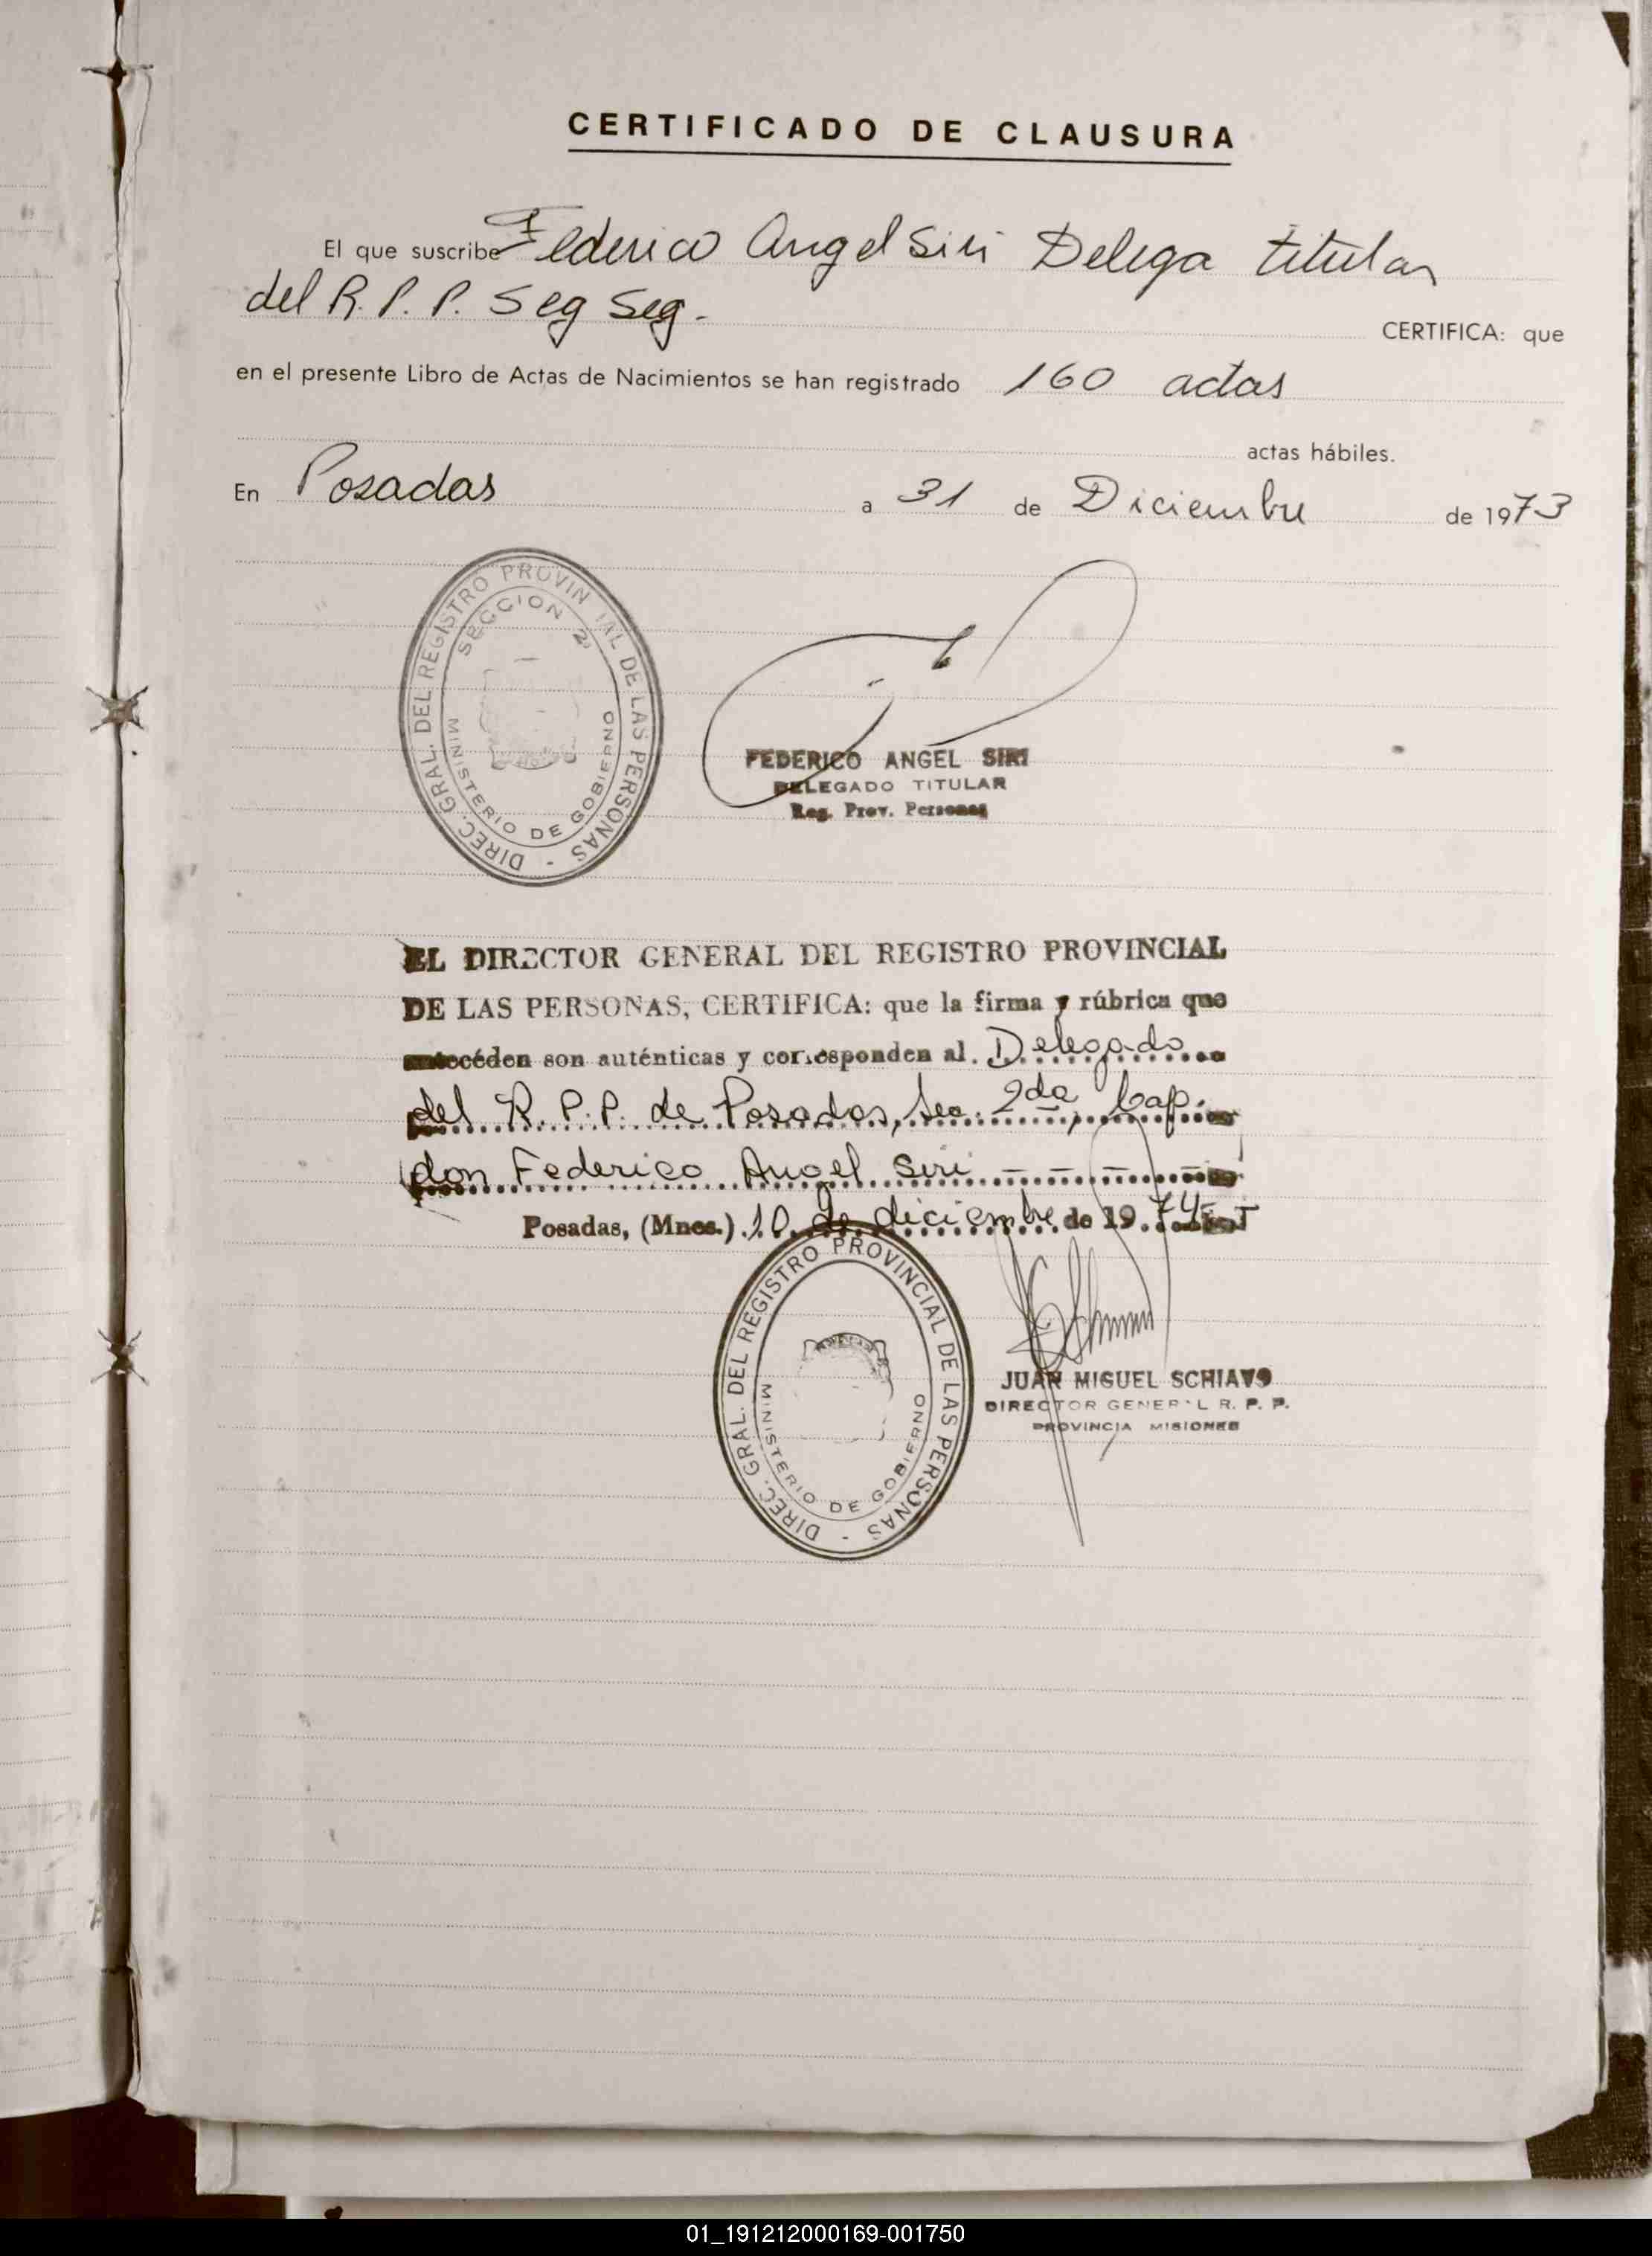 CERTIFICADO DE CLAUSURA
El que suscribe Federico Angel Siri Delega titular
del R. P. P. Seg Seg.- CERTIFICA: que
en el presente Libro de Actas de Nacimientos se han registrado 160 actas
actas hábiles.
En Posadas a 31 de Diciembre de 1973
DIREC. GRAL. DEL REGISTRO PROVIN IAL DE LAS PERSONAS -
SECCION 2ª
MINISTERIO DE GOBIERNO
FEDERICO ANGEL SIRI
DELEGADO TITULAR
Reg. Prov. Personas
EL DIRECTOR GENERAL DEL REGISTRO PROVINCIAL
DE LAS PERSONAS, CERTIFICA: que la firma y rúbrica que
antecéden son auténticas y corresponden al. Delegado
del R. P. P. de Posadas, Sec. 2da, Cap.
don Federico Angel Siri - - - -
Posadas, (Mnes.) 10 de diciembre de 1974
DIREC. GRAL. DEL REGISTRO PROVINCIAL DE LAS PERSONAS -
MINISTERIO DE GOBIERNO
JUAN MIGUEL SCHIAVO
DIRECTOR GENERAL R. P. P.
PROVINCIA MISIONES
01_191212000169-001750